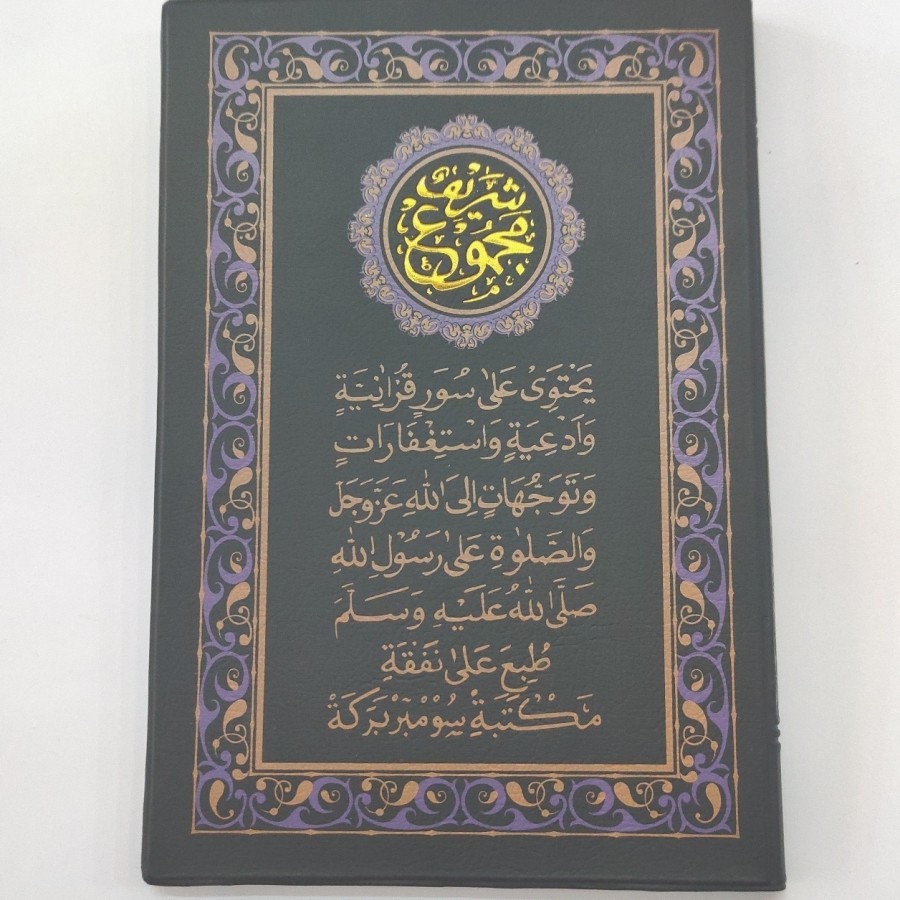 مجموع
شريف
يَحْتَوِىْ عَلٰى سُوَرٍ قُرْاٰنِيَةٍ
وَاَدْعِيَةٍ وَاسْتِغْفَارَاتٍ
وَتَوَجُّهَاتٍ اِلَى اللّٰهِ عَزَّوَجَلَّ
وَالصَّلٰوةِ عَلٰى رَسُوْلِ اللّٰهِ
صَلَّى اللّٰهُ عَلَيْهِ وَسَلَّمَ
طُبِعَ عَلٰى نَفَقَةِ
مَكْتَبَةِ سُوْمْبَرْ بَرَكَةْ